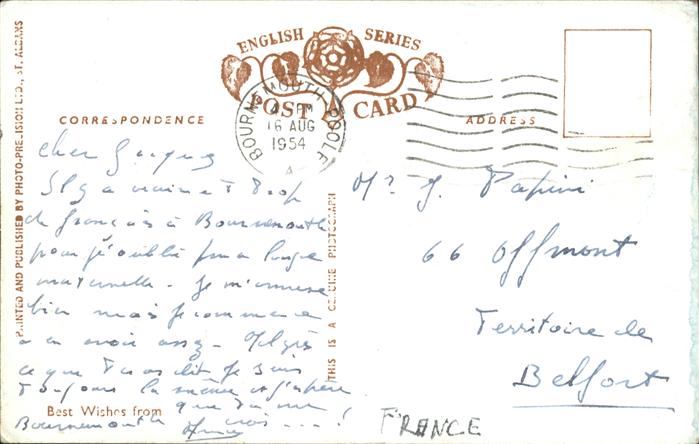 ENGLISH SERIES
POST CARD
CORRESPONDENCE
ADDRESS
BOURNEMOUTH POOLE
4 PM
16 AUG
1954
A
PRINTED AND PUBLISHED BY PHOTO-PRECISION LTD., ST. ALBANS
THIS IS A GENUINE PHOTOGRAPH
Cher Jacques
Il y a vraiment trop
de français à Bournemouth
pour j'oublie ma langue
maternelle. Je m'amuse
bien mais je commence
à en avoir assez. Malgré
ce que tu as dit je suis
toujours la même et j'espère
que tu me
Best Wishes from
Bournemouth crois ... !
Mr J. Papini
66 Offemont
Territoire de
Belfort
FRANCE